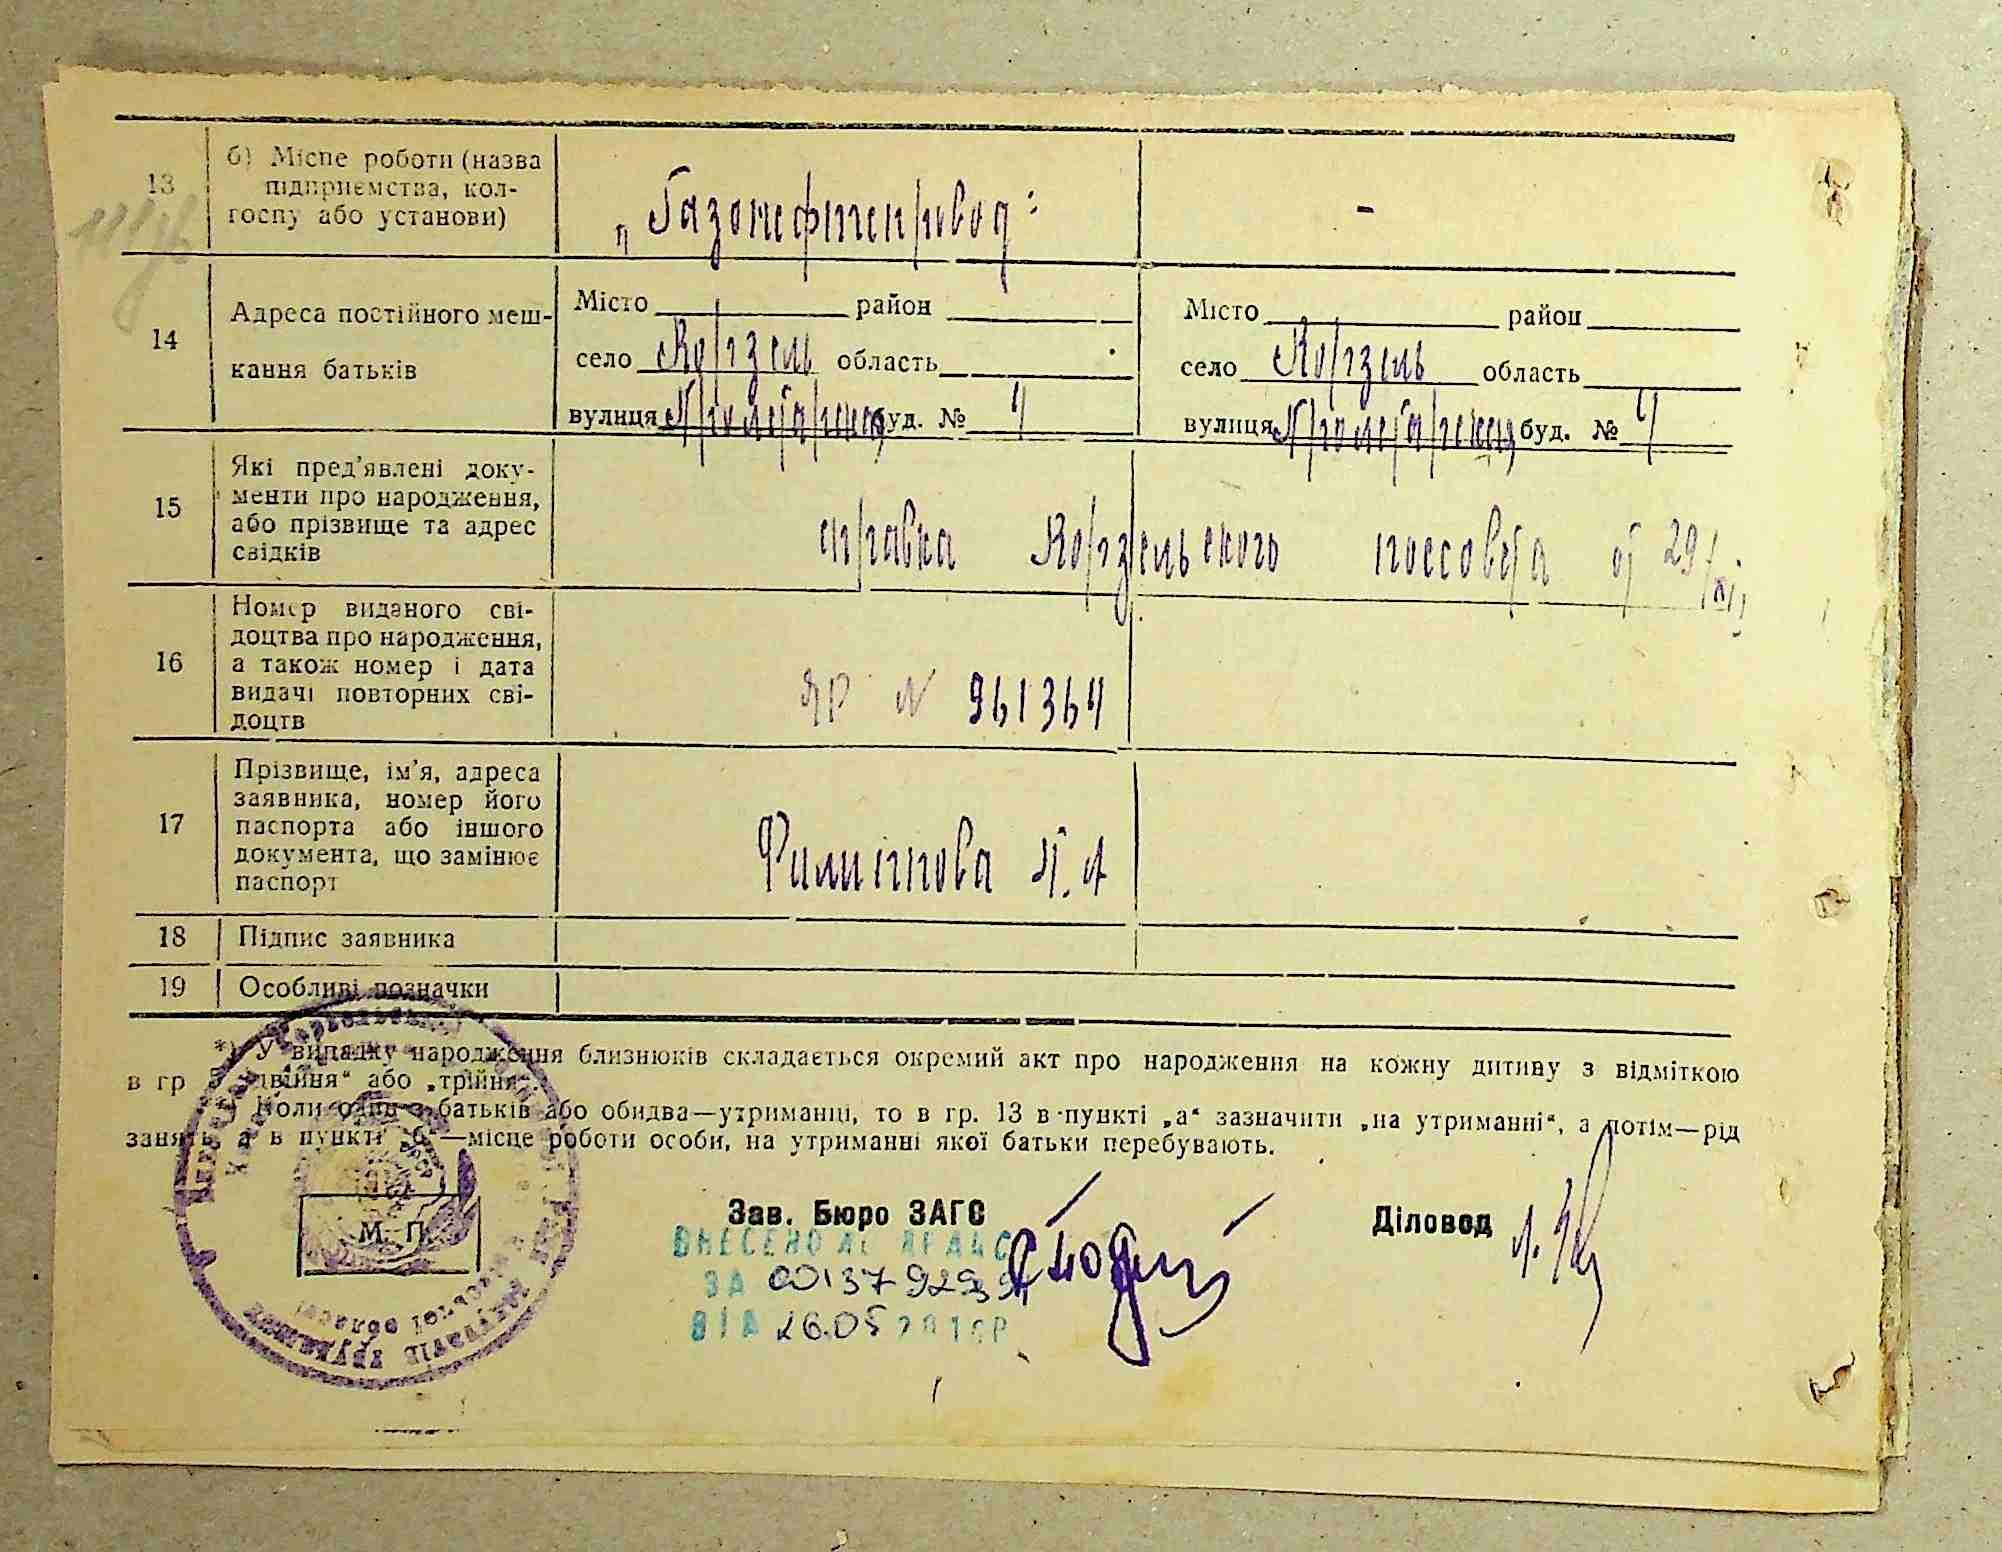 13
б) Місце роботи (назва
підприємства, кол-
госпу або установи)
„Газонефтепровод"
-
14
Адреса постійного меш-
кання батьків
Місто район
село область
вулиця Пролетарская буд. № 4
Місто район
село область
вулиця Пролетарская буд. № 4
15
Які пред'явлені доку-
менти про народження,
або прізвище та адрес
свідків
справка поссовета от 29/XI
16
Номер виданого сві-
доцтва про народження,
а також номер і дата
видачі повторних сві-
доцтв
ЯР № 961364
17
Прізвище, ім'я, адреса
заявника, номер його
паспорта або іншого
документа, що замінює
паспорт
Филиппова
18
Підпис заявника
19
Особливі позначки
*) У випадку народження близнюків складається окремий акт про народження на кожну дитину з відміткою
в гр „двійня“ або „трійня“.
Коли один з батьків або обидва—утриманці, то в гр. 13 в пункті „а“ зазначити „на утриманні“, а потім—рід
занять, а в пункті „б“—місце роботи особи, на утриманні якої батьки перебувають.
М. П.
Зав. Бюро ЗАГС
Діловод
ВНЕСЕНО ДО ДРАЦС
ЗА
ВІД 26.05